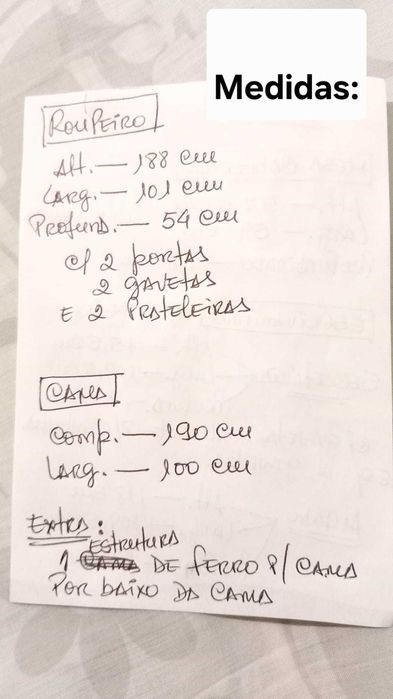 Medidas:
ROUPEIRO
Alt. — 188 cm
Larg. — 101 cm
Profund. — 54 cm
c/ 2 portas
2 gavetas
E 2 PRATELEIRAS
CAMA
Comp. — 190 cm
Larg. — 100 cm
Extra:
Estrutura
1 CAMA DE FERRO P/ CAMA
POR BAIXO DA CAMA